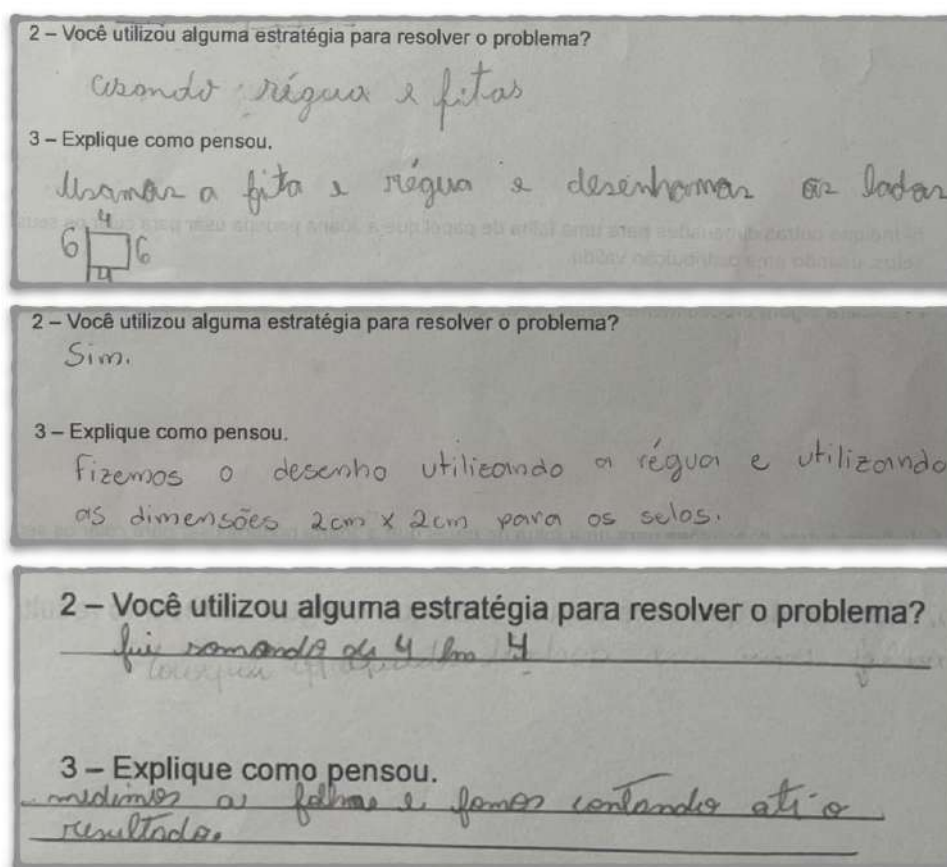 2 – Você utilizou alguma estratégia para resolver o problema?
usando régua e fitas
3 – Explique como pensou.
Usamos a fita e régua e desenhamos os lados
4
6 6
4
2 – Você utilizou alguma estratégia para resolver o problema?
Sim.
3 – Explique como pensou.
Fizemos o desenho utilizando a régua e utilizando
as dimensões 2cm x 2cm para os selos.
2 – Você utilizou alguma estratégia para resolver o problema?
fui somando de 4 em 4
3 – Explique como pensou.
medimos as folhas e fomos contando até o
resultado.